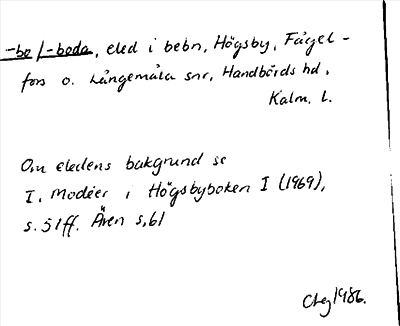 -bo/-boda, eled i bebn, Högsby, Fågel-
fors o. Långemåla snr, Handbörds hd,
Kalm. l.
Om eledens bakgrund se
I. Modéer i Högsbyboken I (1969),
s. 51ff. Även s. 61
1986.